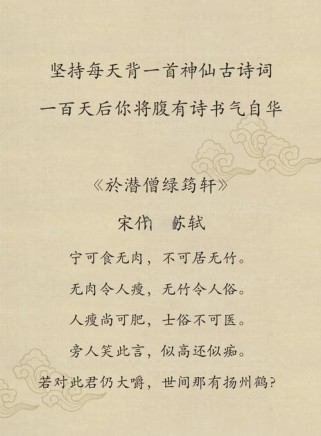 坚持每天背一首神仙古诗词
一百天后你将腹有诗书气自华
《於潜僧绿筠轩》
宋代 苏轼
宁可食无肉，不可居无竹。
无肉令人瘦，无竹令人俗。
人瘦尚可肥，士俗不可医。
旁人笑此言，似高还似痴。
若对此君仍大嚼，世间那有扬州鹤？